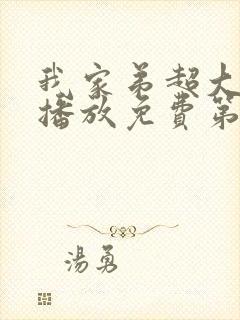 我家弟超大
播放免費第
湯勇